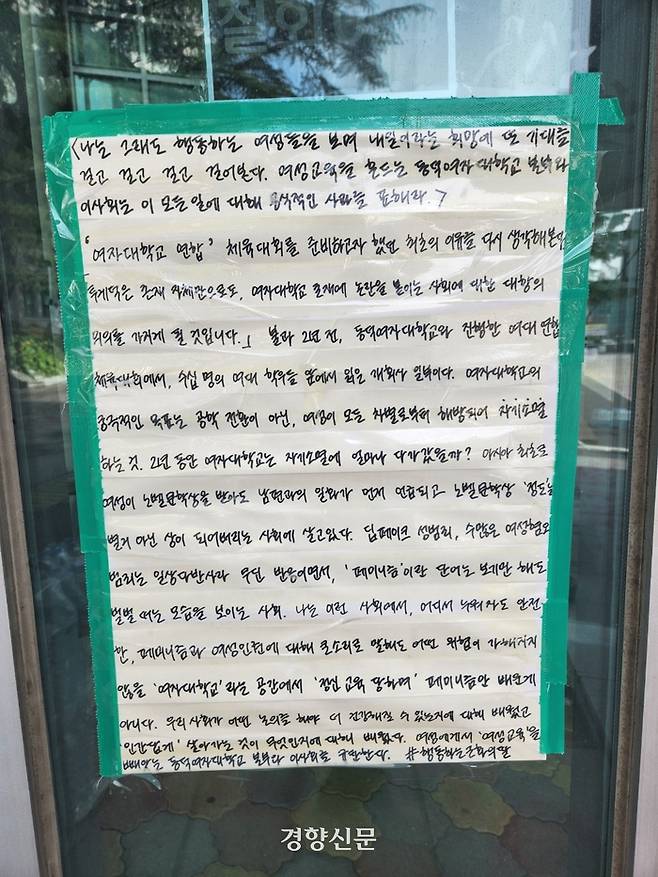 철회
<나는 그래도 행동하는 여성들을 보며 내일이라는 희망에 또 기대를
걸고 걸고 걸고 걸어본다. 여성교육을 흔드는 동덕여자대학교 본부와
이사회는 이 모든 일에 대해 공식적인 사과를 표해라.>
'여자대학교 연합' 체육대회를 준비하고자 했던 최초의 이유를 다시 생각해본다.
「두계덕은 존재 자체만으로도, 여자대학교 존재에 논란을 붙이는 사회에 대한 대항의
의의를 가지게 될 것입니다.」 불과 2년 전, 동덕여자대학교와 진행한 여대 연합
체육대회에서, 수십 명의 여대 학우들 앞에서 읽은 개회사 일부이다. 여자대학교의
궁극적인 목표는 공학 전환이 아닌, 여성이 모든 차별로부터 해방되어 자기소멸
하는 것. 2년 동안 여자대학교는 자기소멸에 얼마나 다가갔을까? 아시아 최초로
여성이 노벨문학상을 받아도 남편과의 일화가 먼저 언급되고 노벨문학상 '정도'는
별거 아닌 상이 되어버리는 사회에 살고있다. 딥페이크 성범죄, 수많은 여성혐오
범죄는 일상다반사라 무딘 반응이면서, '페미니즘'이란 단어는 보게만 해도
벌벌 떠는 모습을 보이는 사회. 나는 이런 사회에서, 어디서 누워자도 안전
한, 페미니즘과 여성인권에 대해 큰소리로 말해도 어떤 위험이 가해지지
않을 '여자대학교'라는 공간에서 '정신 교육 당하며' 페미니즘만 배운게
아니다. 우리 사회가 어떤 논의를 해야 더 건강해질 수 있는지에 대해 배웠고
'인간답게' 살아가는 것이 무엇인지에 대해 배웠다. 여성에게서 '여성교육'을
빼앗는 동덕여자대학교 본부와 이사회를 규탄한다. #행동하는근화의딸
경향신문